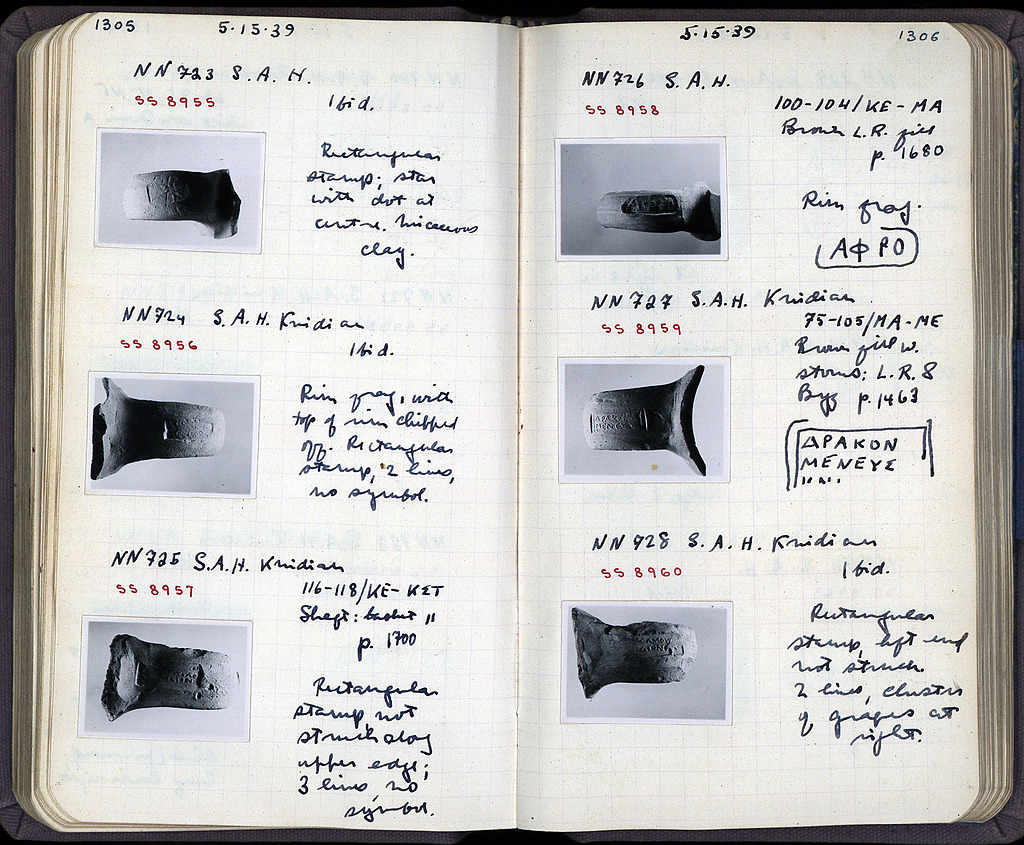 1305
5·15·39
NN 723 S.A.H.
SS 8955
Ibid.
Rectangular
stamp; star
with dot at
centre. Micaceous
clay.
NN 724 S.A.H. Knidian
SS 8956
Ibid.
Rim frag. with
top of rim chipped
off. Rectangular
stamp, 2 lines,
no symbol.
NN 725 S.A.H. Knidian
SS 8957
116-118/ΚΕ-ΚΣΤ
Shaft: basket 11
p. 1700
Rectangular
stamp, not
struck along
upper edge;
3 lines, no
symbol.
5·15·39
1306
NN 726 S.A.H.
SS 8958
100-104/ΚΕ-ΜΑ
Brown L.R. fill
p. 1680
Rim frag.
ΑΦΡΟ
NN 727 S.A.H. Knidian
SS 8959
75-105/ΜΑ-ΜΕ
Brown fill w.
stones; L.R. &
Byz p. 1463
ΔΡΑΚΟΝ
ΜΕΝΕΥΣ
NN 728 S.A.H. Knidian
SS 8960
Ibid.
Rectangular
stamp, left end
not struck.
2 lines, cluster
of grapes at
right.